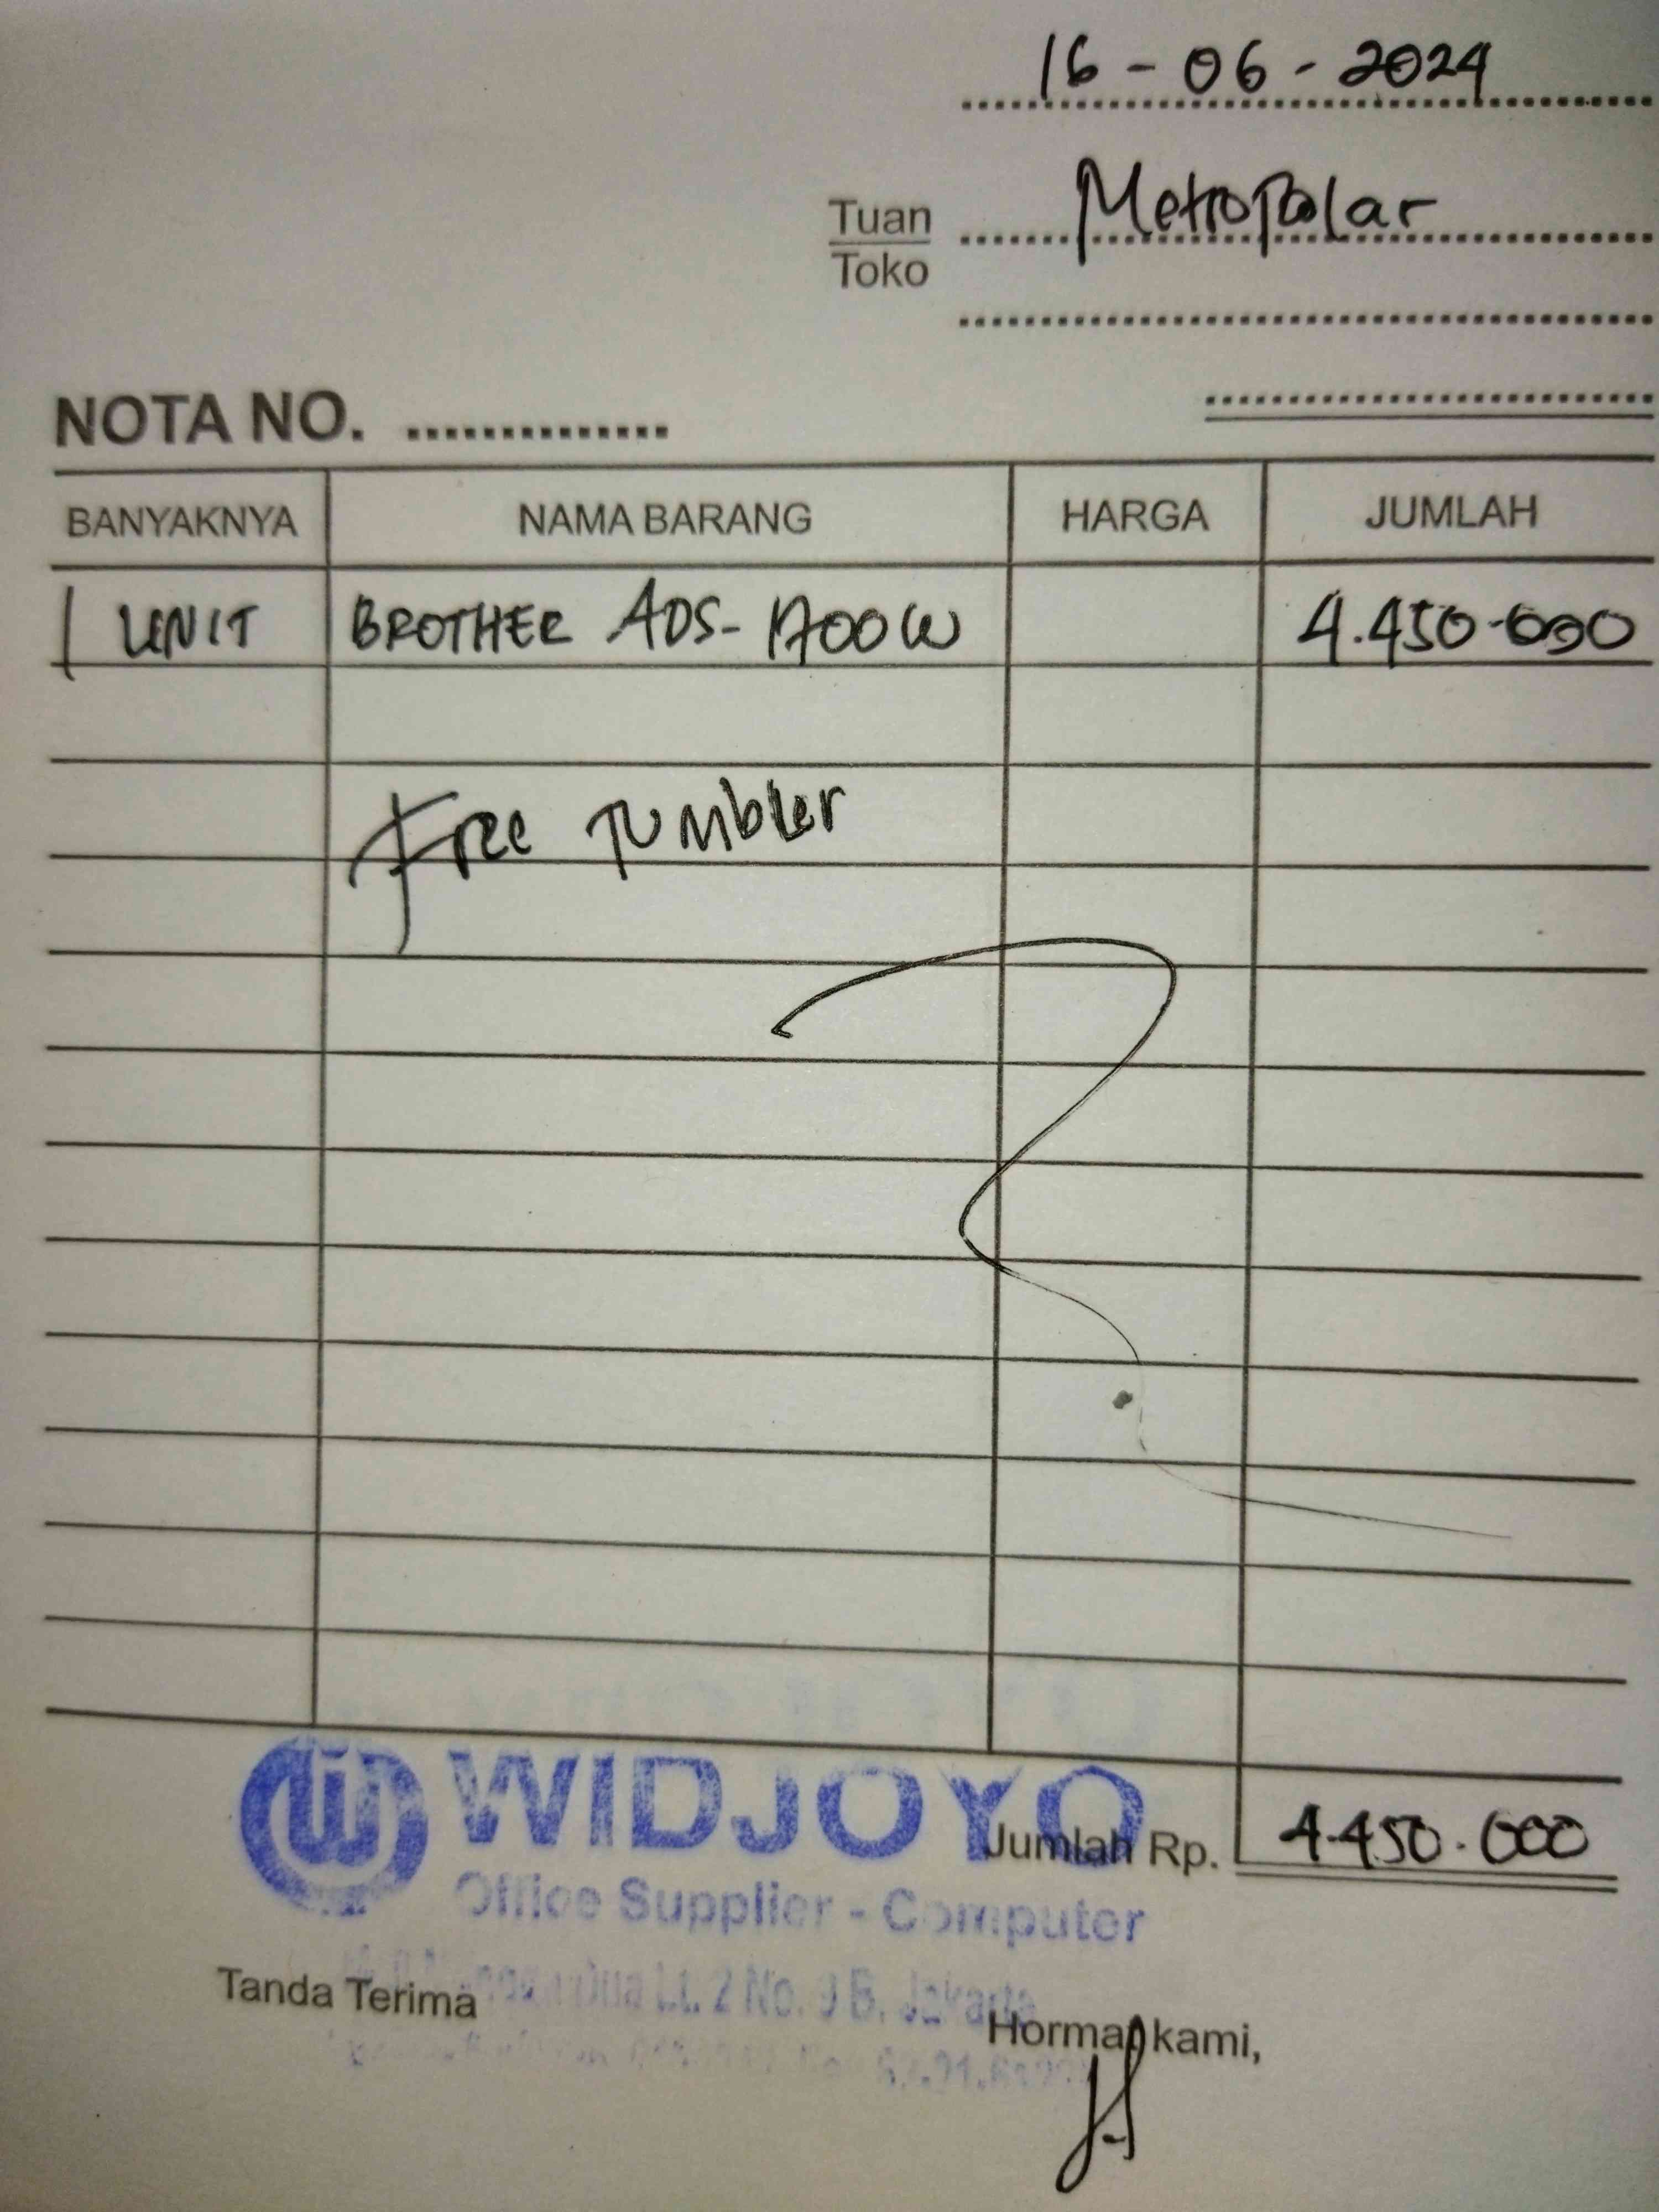 16 - 06 - 2024
Tuan Metropolar
Toko
NOTA NO. ..............
BANYAKNYA NAMA BARANG HARGA JUMLAH
1 UNIT BROTHER ADS-1700W 4.450.000
Free Tumbler
WIDJOYO
Jumlah Rp. 4.450.000
Office Supplier - Computer
Dua Lt. 2 No. 9 B. Jakarta
Tanda Terima
Hormat kami,